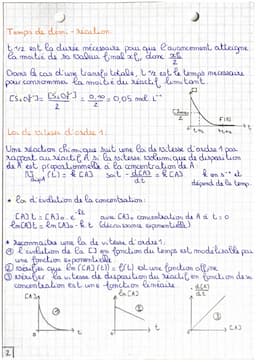 Temps de demi-réaction.
t 1/2 est la durée nécessaire pour que l'avancement atteigne
la moitié de sa valeur final xf, donc xf/2
Dans le cas d'une transfo totale, t 1/2 est le temps nécessaire
pour consommer la moitié du réactif limitant.
= 0,10/2 = 0,05 mol.L⁻¹
Loi de vitesse d'ordre 1.
Une réaction chimique suit une loi de vitesse d'ordre 1 par
rapport au réactif A si la vitesse volumique de disparition
de A est proportionnelle à la concentration de A.
(t) = k [A] soit - d[A]/dt = k [A] k en s⁻¹ et
dépend de la temp.
• Loi d'évolution de la concentration:
[A]t = [A]₀ . e⁻ᵏᵗ avec [A]₀ concentration de A à t = 0
ln[A]t = ln[A]₀ - k.t (décroissance exponentielle)
• Reconnaitre une loi de vitesse d'ordre 1.
① l'évolution de la [ ] en fonction du temps est modélisable par
une fonction exponentielle
② vérifier que ln([A](t)) = f(t) est une fonction affine.
③ vérifier la vitesse de disposition du réactif en fonction de sa
concentration est une fonction linéaire.
[A] ① t
ln[A] ② t
- d[A]/dt ③ [A]
2